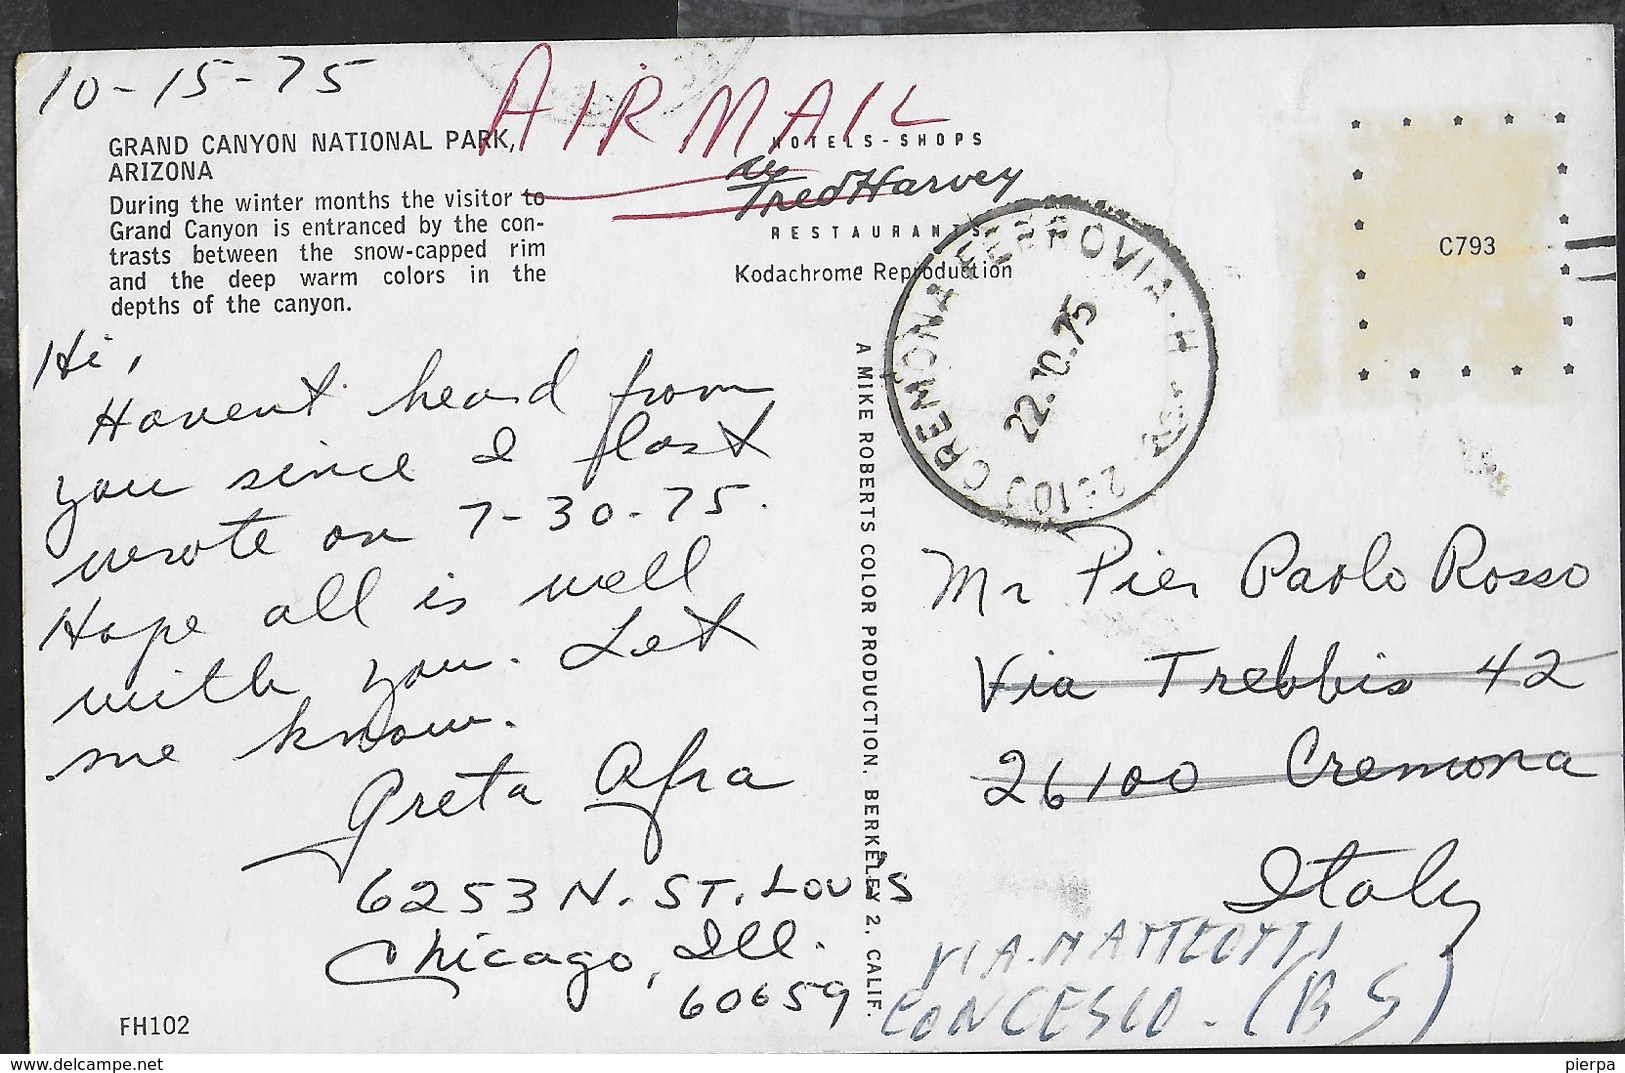 10-15-75
AIR MAIL
GRAND CANYON NATIONAL PARK,
ARIZONA
During the winter months the visitor to
Grand Canyon is entranced by the con-
trasts between the snow-capped rim
and the deep warm colors in the
depths of the canyon.
HOTELS-SHOPS
Fred Harvey
RESTAURANTS
Kodachrome Reproduction
C793
CREMONA FERROVIA
22.10.75
Hi,
Havent heard from
you since I last
wrote on 7-30-75.
Hope all is well
with you. Let
me know.
Greta Afra
6253 N. ST. LOUIS
Chicago, Ill.
60659
A MIKE ROBERTS COLOR PRODUCTION, BERKELEY 2, CALIF.
Mr Pier Paolo Rosso
Via Trebbis 42
26100 Cremona
Italy
VIA. MATTEOTTI
CONCESIO - (BS)
FH102
delcampe.net
pierpa